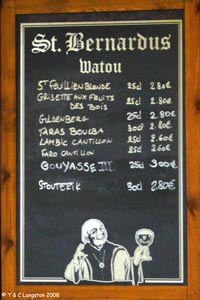 St. Bernardus
Watou
ST FEUILLIEN BLONDE 25cl 2.80€
GRISETTE AUX FRUITS
DES BOIS 25cl 2.80€
GULDENBERG 25cl 2.80€
TARAS BOULBA 30cl 2.80€
LAMBIC CANTILLON 25cl 2.60€
FARO CANTILLON 25cl 2.60€
GOUYASSE III 25cl 3.00€
STOUTERIK 30cl 2.80€
© T & C Langston 2008